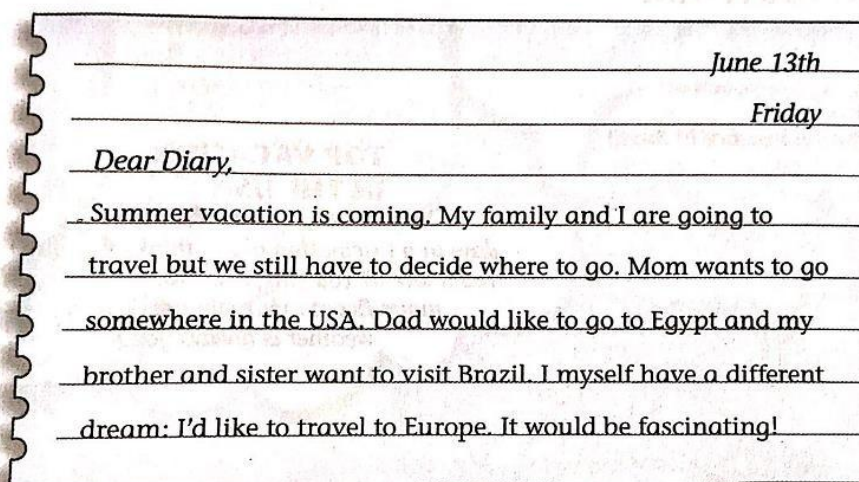 June 13th
Friday
Dear Diary,
Summer vacation is coming. My family and I are going to
travel but we still have to decide where to go. Mom wants to go
somewhere in the USA. Dad would like to go to Egypt and my
brother and sister want to visit Brazil. I myself have a different
dream: I'd like to travel to Europe. It would be fascinating!